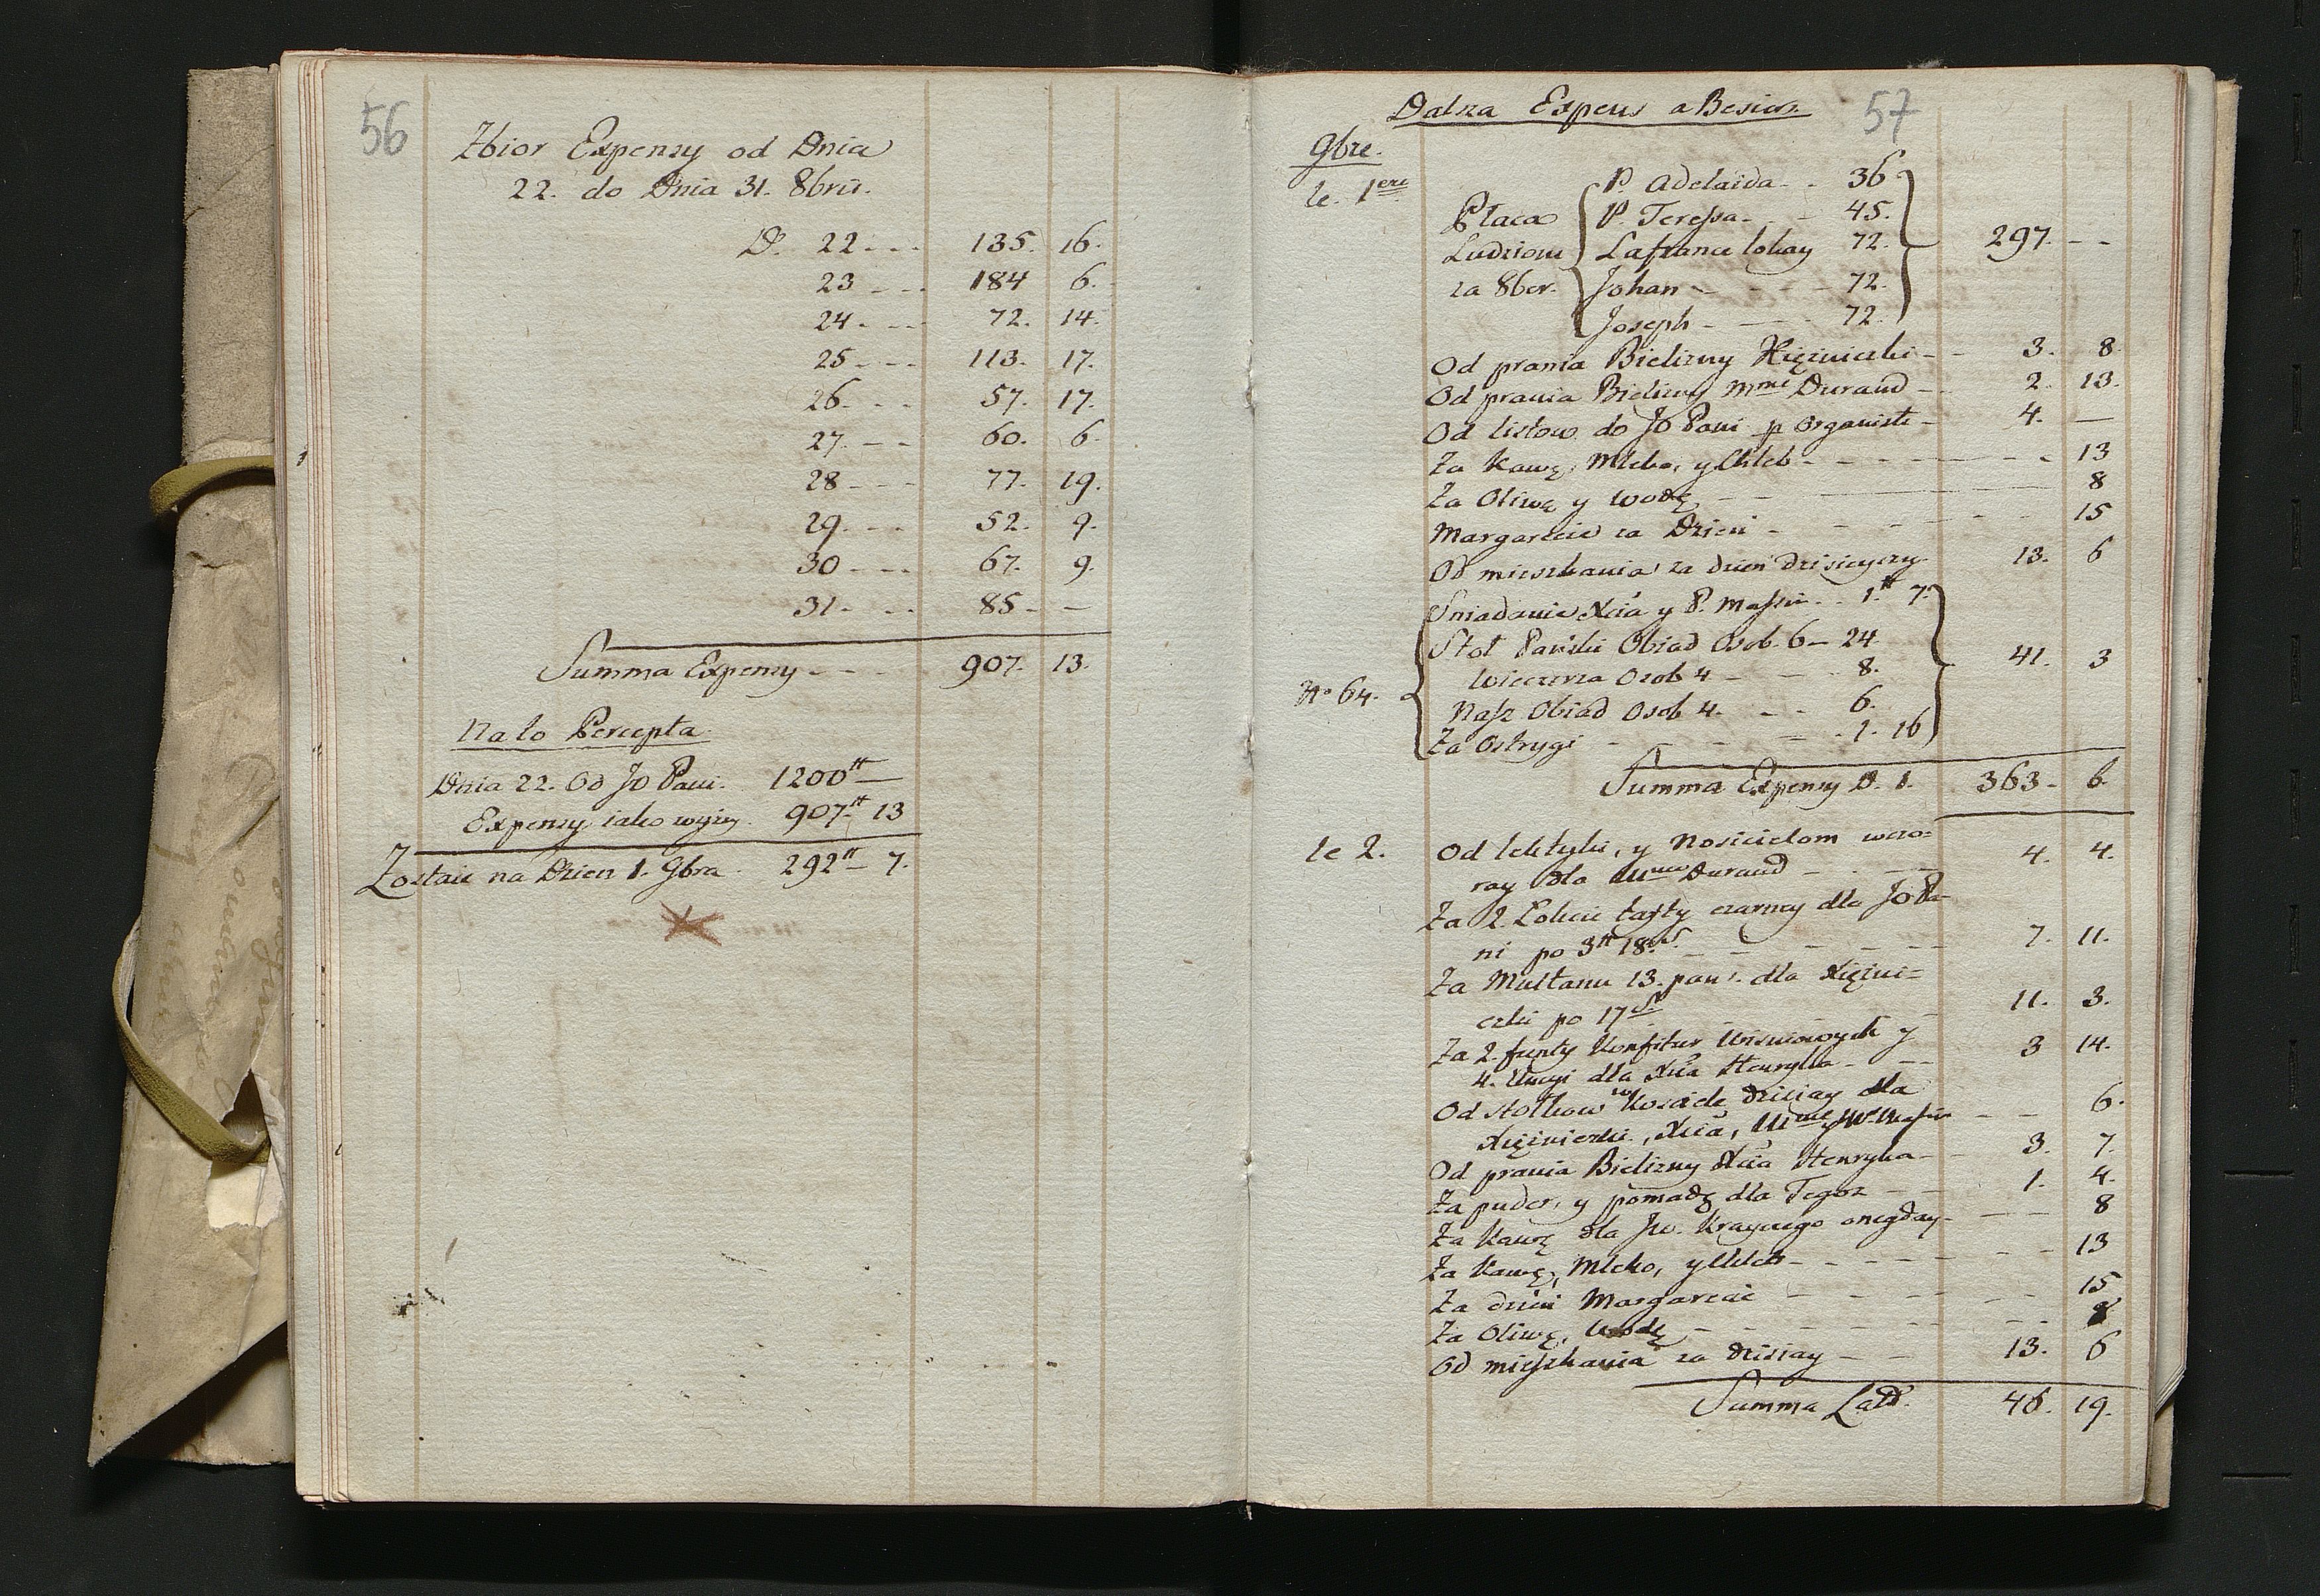 56
Zbior Expensy od Dnia
22. do Dnia 31. 8bris.
D. 22 - - - 135. 16.
23 - - - 184 6.
24 - - - 72. 14.
25 - - - 113. 17.
26 - - - 57. 17.
27 - - - 60. 6.
28 - - - 77. 19.
29 - - - 52. 9.
30 - - - 67. 9.
31 - - - 85 - -
Summa Expensy - - - 907. 13.
Na to Percepta.
Dnia 22. Od JO Pani. 1200tt —
Expensy iako wyżey. 907tt 13
Zostaie na Dzien 1. 9bra. 292tt 7.
57
Dalsza Expens a
9bre.
le 1ere
Płaca
Ludziom
za 8ber.
P. Adelaida - - 36
P. Teressa - - 45.
Lafrance lokay 72.
Johan - - - 72.
Joseph - - - 72.
297. - -
Od prania Bielizny Xiężniczki - - 3. 8.
Od prania Bielizny Mme Durand - 2. 13.
Od listow do JO Pani p Organiste - 4. —
Za Kawę, Mleko, y Chleb - - - - 13
Za Oliwę y Wodę - - - 8
Margarecie za Dzien - - - - 15
Od mieszkania za dzien dzisieyszy 13. 6
No 64.
Sniadanie Xcia y P. Massin - - 1.tt 7.
Stoł Pański Obiad Osob. 6 - 24.
Wieczerza Osob 4 - - - 8.
Nasz Obiad Osob 4. - - 6.
Za Ostrygi - - - - 1. 16
41. 3
Summa Expensy D. 1. 363 - 6.
le 2. Od lektyki, y Nosicielom wczo=
ray dla Mme Durand - - - 4. 4.
Za 2. Łokcie tafty czarney dla JO Pa-
ni po 3tt 18s. - - - - 7. 11.
Za Multanu 13. pan. dla Xiężni=
czki po 17s. - 11. 3.
Za 2. funty Konfitur Wisniowych y
4. Uncyi dla Xcia Henryka - - - 3 14.
Od stołkow w Kosciele dzisiay dla
Xiężniczki, Xcia, Mme y Mr Massin - - 6.
Od prania Bielizny Xcia Henryka - - 3. 7.
Za puder, y pomadę dla Tegoz - - 1. 4.
Za Kawę dla Jw. Krayczego onegday - - - 8
Za Kawę, Mleko, y Chleb - - - - - 13
Za dzien Margarecie - - - - - 15
Za Oliwę, Wodę - - - - - - 8
Od mieszkania za dzisiay - - 13. 6
Summa Latt. 46. 19.